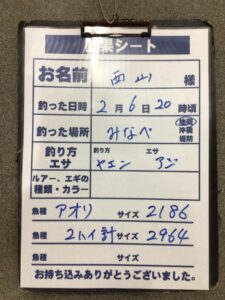 果シート
お名前 西山 様
釣った日時 2月6日20時頃
釣った場所 みなべ 地磯 沖磯 堤防
釣り方 エサ 釣り方 ヤエン エサ アジ
ルアー、エギの種類・カラー
魚種 アオリ サイズ 2186
魚種 2ハイ計 サイズ 2964
お持ち込みありがとうございました。